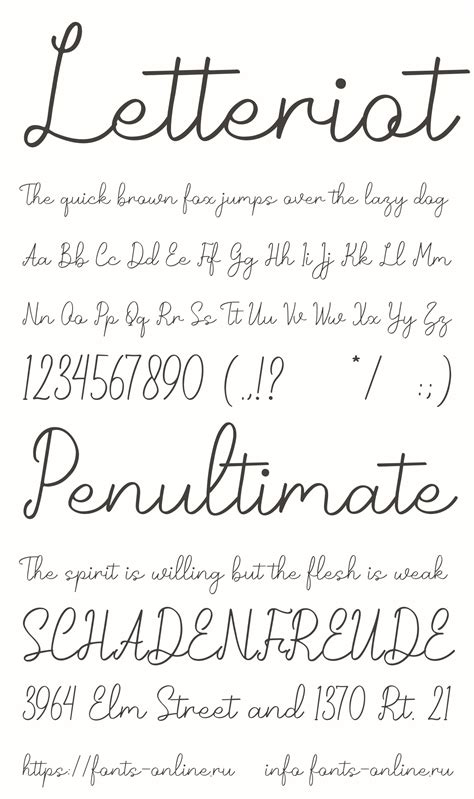 Letteriot
The quick brown fox jumps over the lazy dog
Aa Bb Cc Dd Ee Ff Gg Hh Ii Jj Kk Ll Mm
Nn Oo Pp Qq Rr Ss Tt Uu Vv Ww Xx Yy Zz
1234567890 (.,!? */ :;)
Penultimate
The spirit is willing but the flesh is weak
SCHADENFREUDE
3964 Elm Street and 1370 Rt. 21
https://fonts-online.ru info fonts-online.ru